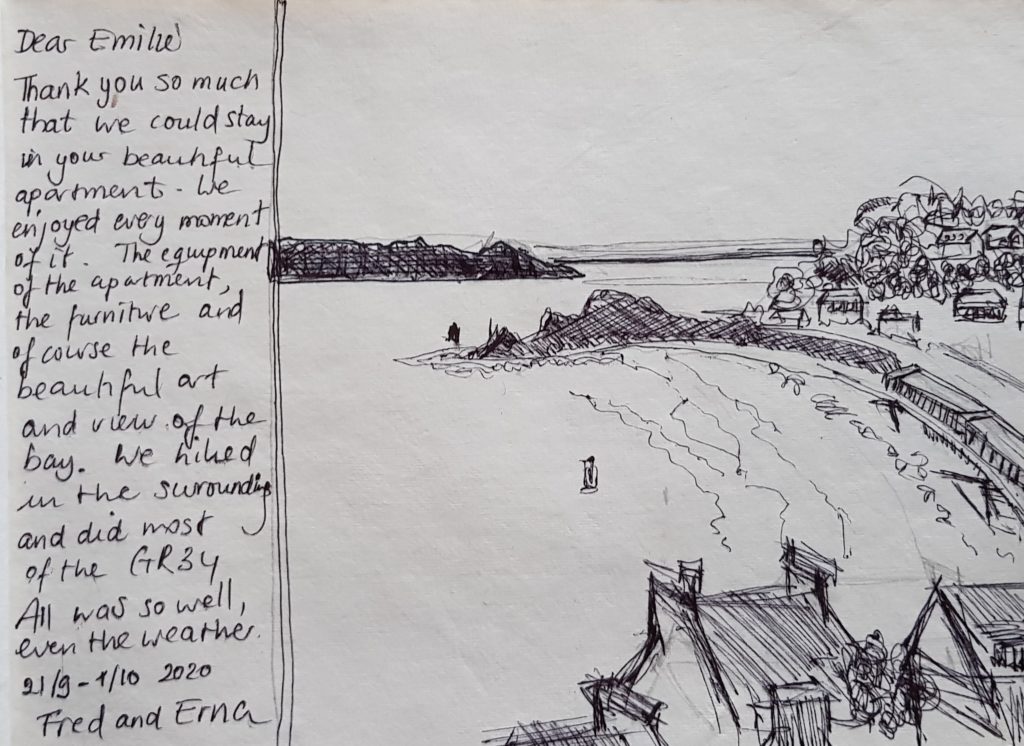 Dear Emilie
Thank you so much
that we could stay
in your beautiful
apartment. We
enjoyed every moment
of it. The equipment
of the apartment,
the furniture and
of course the
beautiful art
and view of the
bay. We hiked
in the surounding
and did most
of the GR34
All was so well,
even the weather.
21/9 - 1/10 2020
Fred and Erna